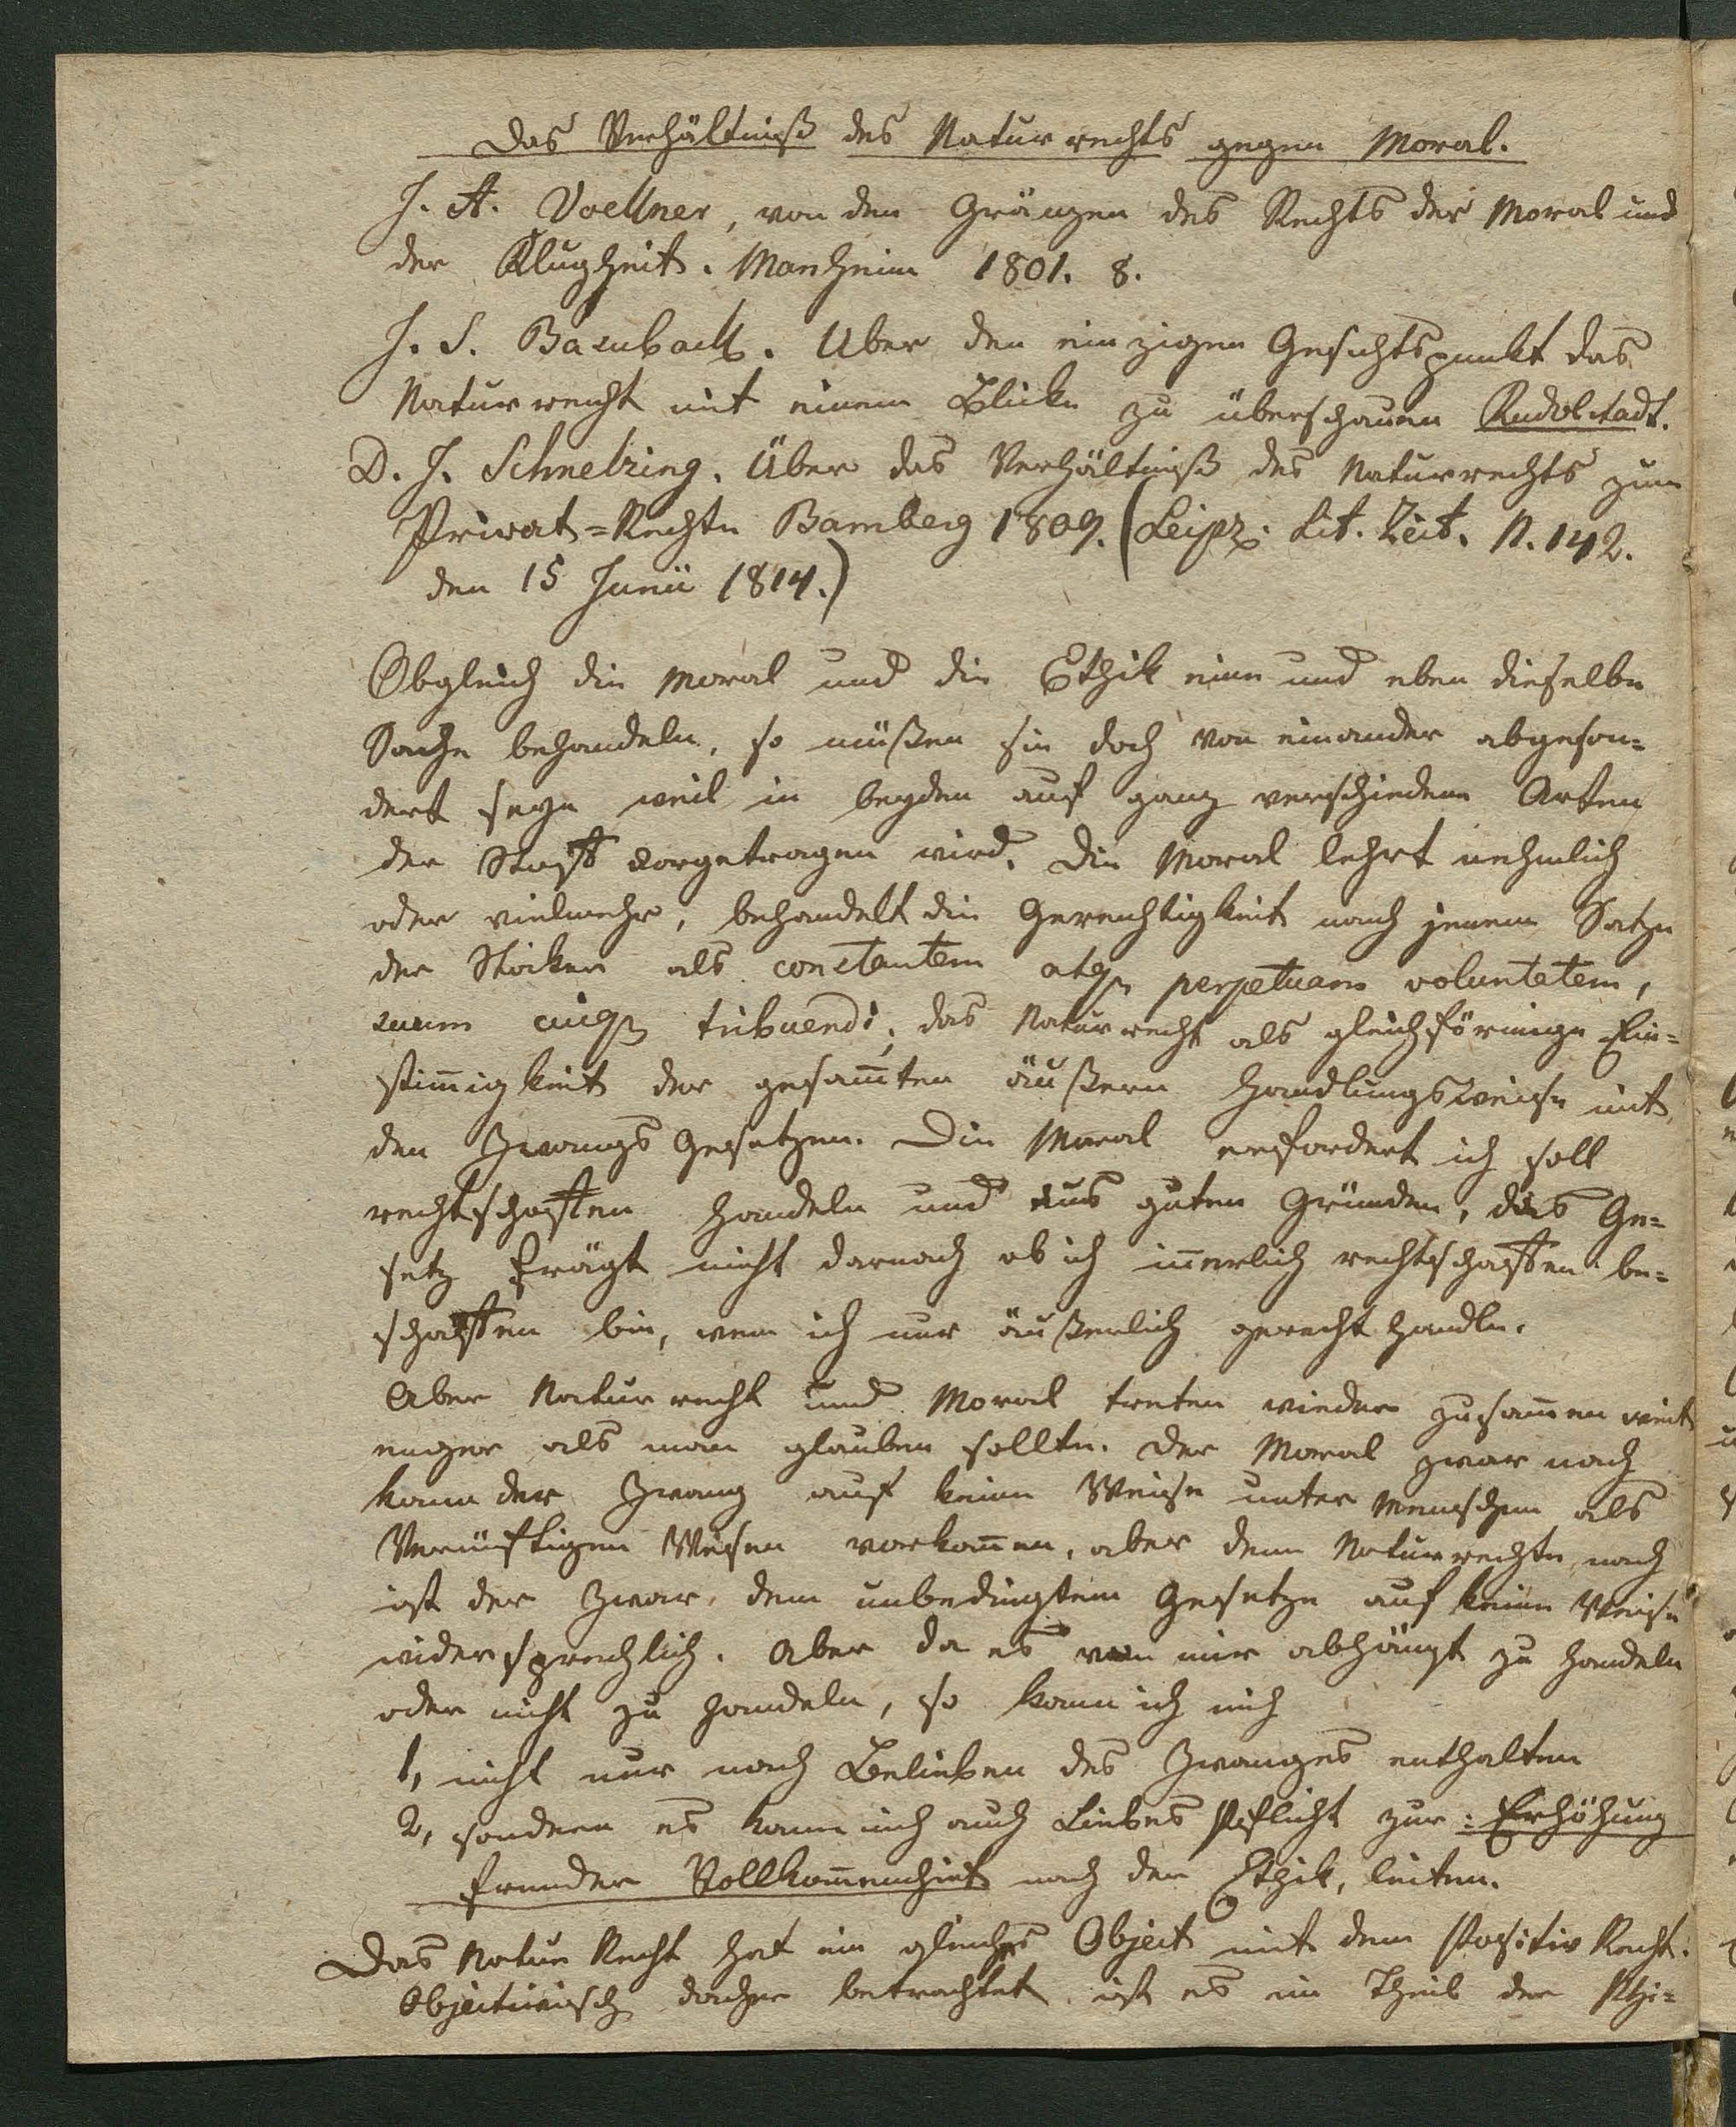 Das Verhältniß des Naturrechts gegen Moral.
J. A. Voellner, von den Gränzen des Rechts der Moral und
der Klugheit. Manheim 1801. 8.
J. S. Über den einzigen Gesichtspunkt das
Naturrecht mit einem Blicke zu überschauen Rudolstadt.
D. J. Schnelzing. Über das Verhältniß des Naturrechts zum
Privat=Rechte Bamberg 1809. (Leipz. Lit. Zeit. N. 142.
den 15 Junii 1814.)
Obgleich die Moral und die Ethik eine und eben dieselbe
Sache behandeln, so müßen sie doch von einander abgeson=
dert seyn weil in beyden auf ganz verschiedene Arten
der Stoff vorgetragen wird. Die Moral lehrt nehmlich
oder vielmehr, behandelt die Gerechtigkeit nach jenem Satze
der Stoiker als constantem atq perpetuam voluntatem,
suum cuiq tribuendi, das Naturrecht als gleichförmige Ein=
stim̄igkeit der gesam̄ten äußern Handlungsweise mit
den Zwangs Gesetzen. Die Moral erfordert ich soll
rechtschaffen handeln und aus guten Gründen, das Ge=
setz frägt nicht darnach ob ich in̄erlich rechtschaffen be=
schaffen bin, wen ich nur äußerlich gerecht handle.
Aber Naturrecht und Moral treten wieder zusam̄en weit
enger als man glauben sollte. Der Moral zwar nach
kann der Zwang auf keine Weise unter Menschen als
Vernüftigen Wesen vorkom̄en, aber dem Naturrechte nach
ist der Zwar, dem unbedingtem Gesetze auf keine Weise
widersprechlich. Aber da es von mir abhängt zu handeln
oder nicht zu handeln, so kann ich mich
1, nicht nur nach Belieben des Zwanges enthalten
2, sondern es kann mich auch Liebes Pflicht zur: Erhöhung
fremder Vollkom̄enheit nach der Ethik, leiten.
Das Natur Recht hat ein gleiches Object mit dem Positiv Recht.
Objectivisch daher betrachtet ist es ein Theil der Phi=